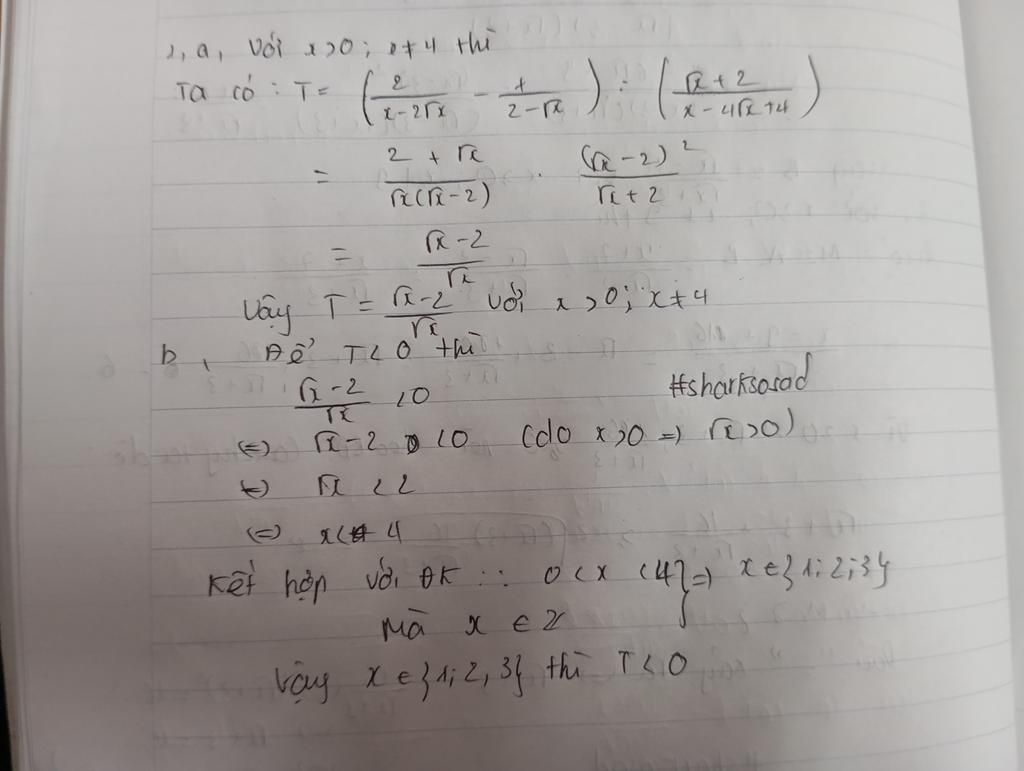 1, a, Với x>0; x≠4 thì
Ta có : T = (2/(x-2√x) - 1/(2-√x)) : ((√x+2)/(x-4√x+4))
= (2+√x)/(√x(√x-2)) . (√x-2)²/(√x+2)
= (√x-2)/√x
Vậy T = (√x-2)/√x với x>0; x≠4
b, Để T<0 thì
(√x-2)/√x <0
#sharksosad
(=) √x-2 <0 (do x>0 => √x>0)
(=) √x <2
(=) x< 4
Kết hợp với ĐK : 0<x<4} => x∈{1;2;3}
Mà x ∈ Z
Vậy x∈{1;2,3} thì T<0